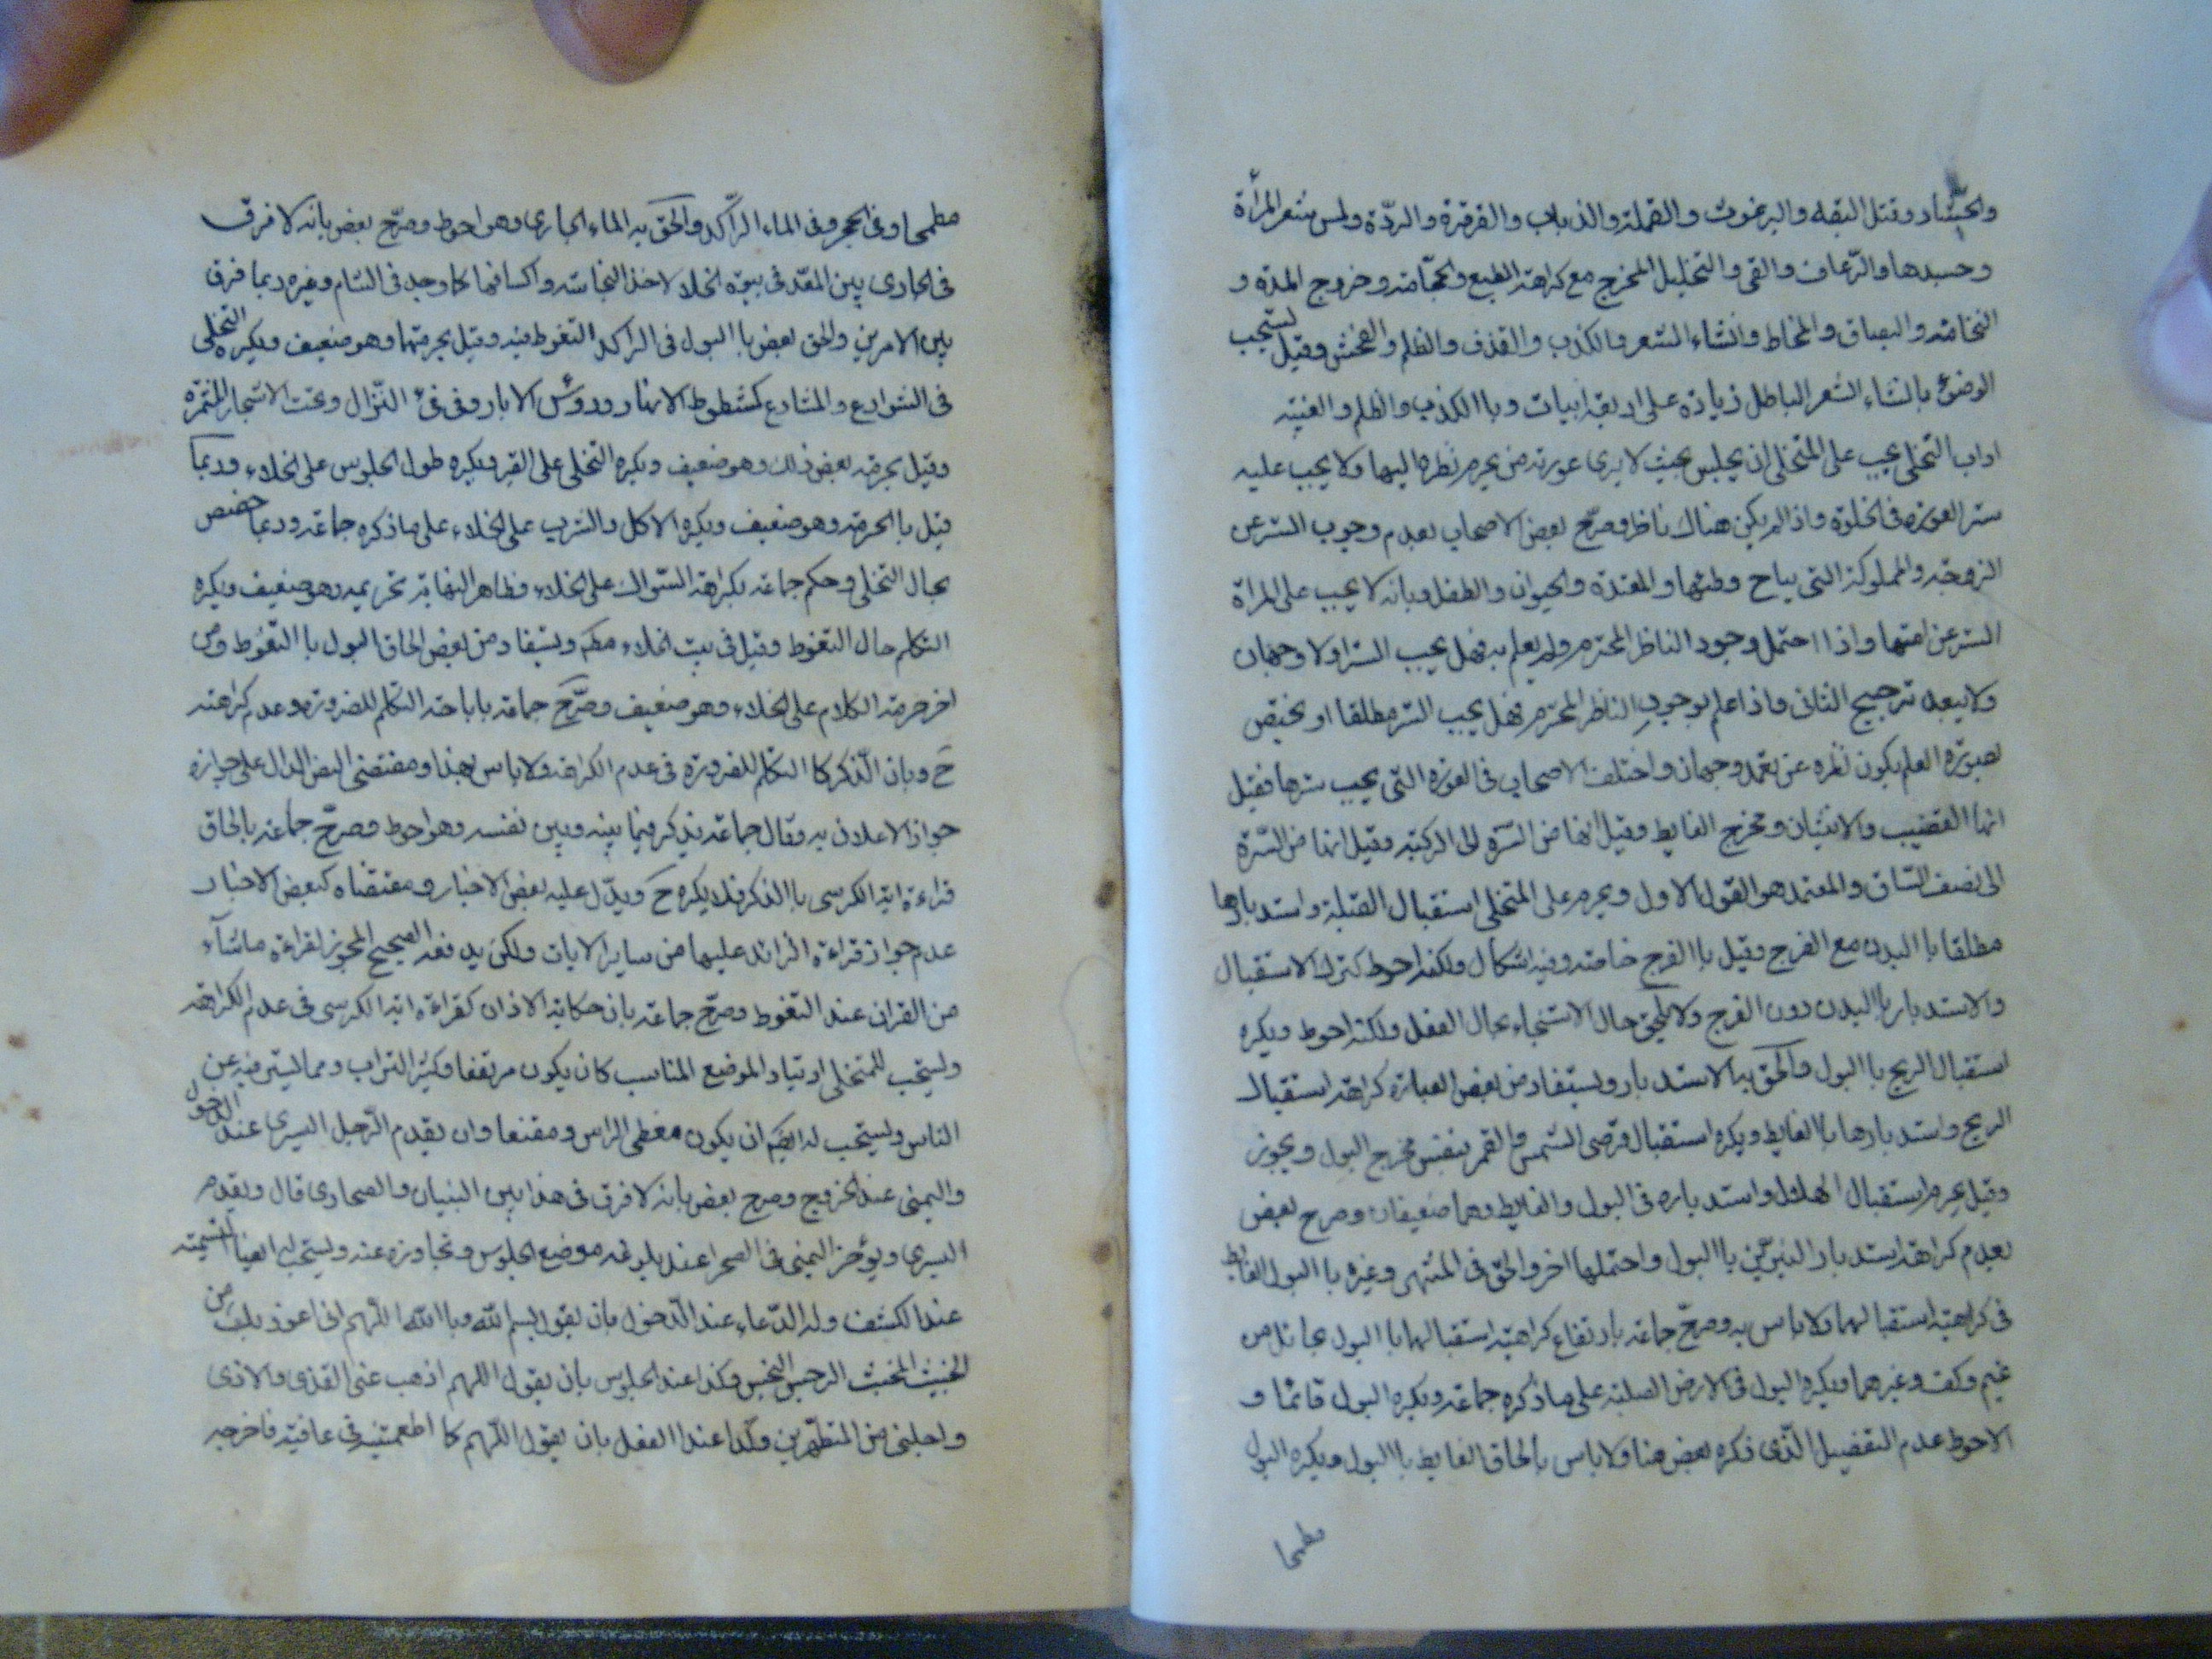 والجشاء وقتل البقه والبرغوث والقملة والذباب والقرقرة والردّة ولمس شعر المرأة
وجسدها والرّعاف والقى والتخليل المخرج مع كراهة الطبع والحجامة وخروج المدة و
النخامة والبصاق والمخاط وانشاء الشعر والكذب والقذف والظلم والفحش وقيل يستحب
الوضوء بانشاء الشعر الباطل زيادة على اربعة ابيات وباالكذب والظلم والغيبة
اداب التخلى يجب على المتخلى ان يجلس بحيث لا يرى عورته من يحرم نظره اليها ولا يجب عليه
ستر العورة فى الخلوة واذا لم يكن هناك ناظر وصرّح بعض الاصحاب بعدم وجوب الستر عن
الزوجة والمملوكة التى يباح وطئها والمعتدة والحيوان والطفل وبانه لا يجب على المراة
الستر عن امتها واذا احتمل وجود الناظر المحترم ولم يعلم به فهل يجب الستر اولا وجهان
ولا يبعد ترجيح الثانى واذا علم بوجود الناظر المحترم فهل يجب الستر مطلقا او يختص
بصورة العلم بكون نظره عن تعمد وجهان واختلف الاصحاب فى العورة التى يجب سترها فقيل
انها القضيب والانثيان ومخرج الغايط وقيل انها من السّرة الى الركبة وقيل انها من السّرة
الى نصف السّاق والمعتمد هو القول الاول ويحرم على المتخلى استقبال القبلة واستدبارها
مطلقا باالبدن مع الفرج وقيل باالفرج خاصة وفيه اشكال ولكنه احوط كترك الاستقبال
والاستدبار باالبدن دون الفرج ولا يلحق حال الاستنجاء بحال الفعل ولكنه احوط ويكره
استقبال الريح باالبول والحق به الاستدبار ويستفاد من بعض العبارة كراهة استقبال
الريح واستدبارها باالغايط ويكره استقبال قرصى الشمس والقمر بنفس مخرج البول ويجوز
وقيل يحرم استقبال الهلال واستدباره فى البول والغايط وهما ضعيفان وصرح بعض
بعدم كراهة استدبار النيّرين باالبول واحتملها اخر والحق فى المنتهى وغيره باالبول الغايط
فى كراهية استقبالهما ولا باس به وصرّح جماعة بارتفاع كراهية استقبالهما باالبول بحائل من
غيم وكف وغيرهما ويكره البول فى الارض الصلبة على ما ذكره جماعة ويكره البول قائما و
الاحوط عدم التفصيل الّذى ذكره بعض هنا ولا باس بالحاق الغايط باالبول ويكره البول
مطمحا
مطمحا وفى الحجر وفى الماء الرّاكد والحق به الماء الجارى وهو احوط وصرّح بعض بانه لا فرق
فى الجارى بين المعّد فى بيوت الخلاء لاخذ النجاسة واكتنافها كما وجد فى الشام وغيره ربما فرق
بين الامرين والحق بعض باالبول فى الراكد التغوط فيه وقيل بحرمتها وهو ضعيف ويكره التخلى
فى الشوارع والمشارع كشطوط الانهار ورؤس الابار وفى فىء النّزال وتحت الاشجار المثمرة
وقيل بحرمة بعض ذلك وهو ضعيف ويكره التخلى على القبر ويكره طول الجلوس على الخلاء وربما
قيل باالحرمة وهو ضعيف ويكره الاكل والشرب على الخلاء على ما ذكره جماعة وربما خصص
بحال التخلى وحكم جماعة بكراهة السّواك على الخلاء وظاهر النهاية تحريمه وهو ضعيف ويكره
التكلم حال التغوط وقيل فى بيت الخلاء مطم ويستفاد من بعض الحاق البول باالتغوط ومن
اخر حرمة الكلام على الخلاء وهو ضعيف وصرّح جماعة باباحة التكلم للضرورة وعدم كراهته
ح وبان الّذكر كا التكلم للضرورة فى عدم الكراهة ولا باس بهذا ومقتضى النص الدال على جوازه
جواز الاعلان به وقال جماعة يذكر فيما بينه وبين نفسه وهو احوط وصرّح جماعة بالحاق
قراءة اية الكرسى باالذكر فلا يكره ح ويدّل عليه بعض الاخبار ومقتضاه كبعض الاخبار
عدم جواز قراءة الزائد عليها من ساير الايات ولكن يدفعه الصحيح المجوز لقراءة ماشآء
من القران عند التغوط وصرّح جماعة بان حكاية الاذان كقراءة اية الكرسى فى عدم الكراهة
ويستحب للمتخلى ارتياد الموضع المناسب كان يكون مرتفعا وكثير التراب ومما يستر فيه عن
الناس ويستحب له ايضا ان يكون مغطى الراس ومقنعا وان يقدم الرّجل اليسرى عند الدخول
واليمنى عند الخروج وصرح بعض بانه لا فرق فى هذا بين البنيان والصحارى قال ويقدم
اليسرى ويؤخر اليمنى فى الصحرا عند بلوغه موضع الجلوس وتجاوزه عنه ويستحب له ايضا التسمية
عند الكشف وله الدّعاء عند الدّخول بان يقول بسم الله وباالله اللهم انى اعوذ بك من
الخبيث المخبث الرجس النجس وكذا عند الجلوس بان يقول اللهم اذهب عنى القذى والاذى
واجلنى من المتطهرين وكذا عند الفعل بان يقول اللهم كا اطعمتنيه فى عافية فاخرجه